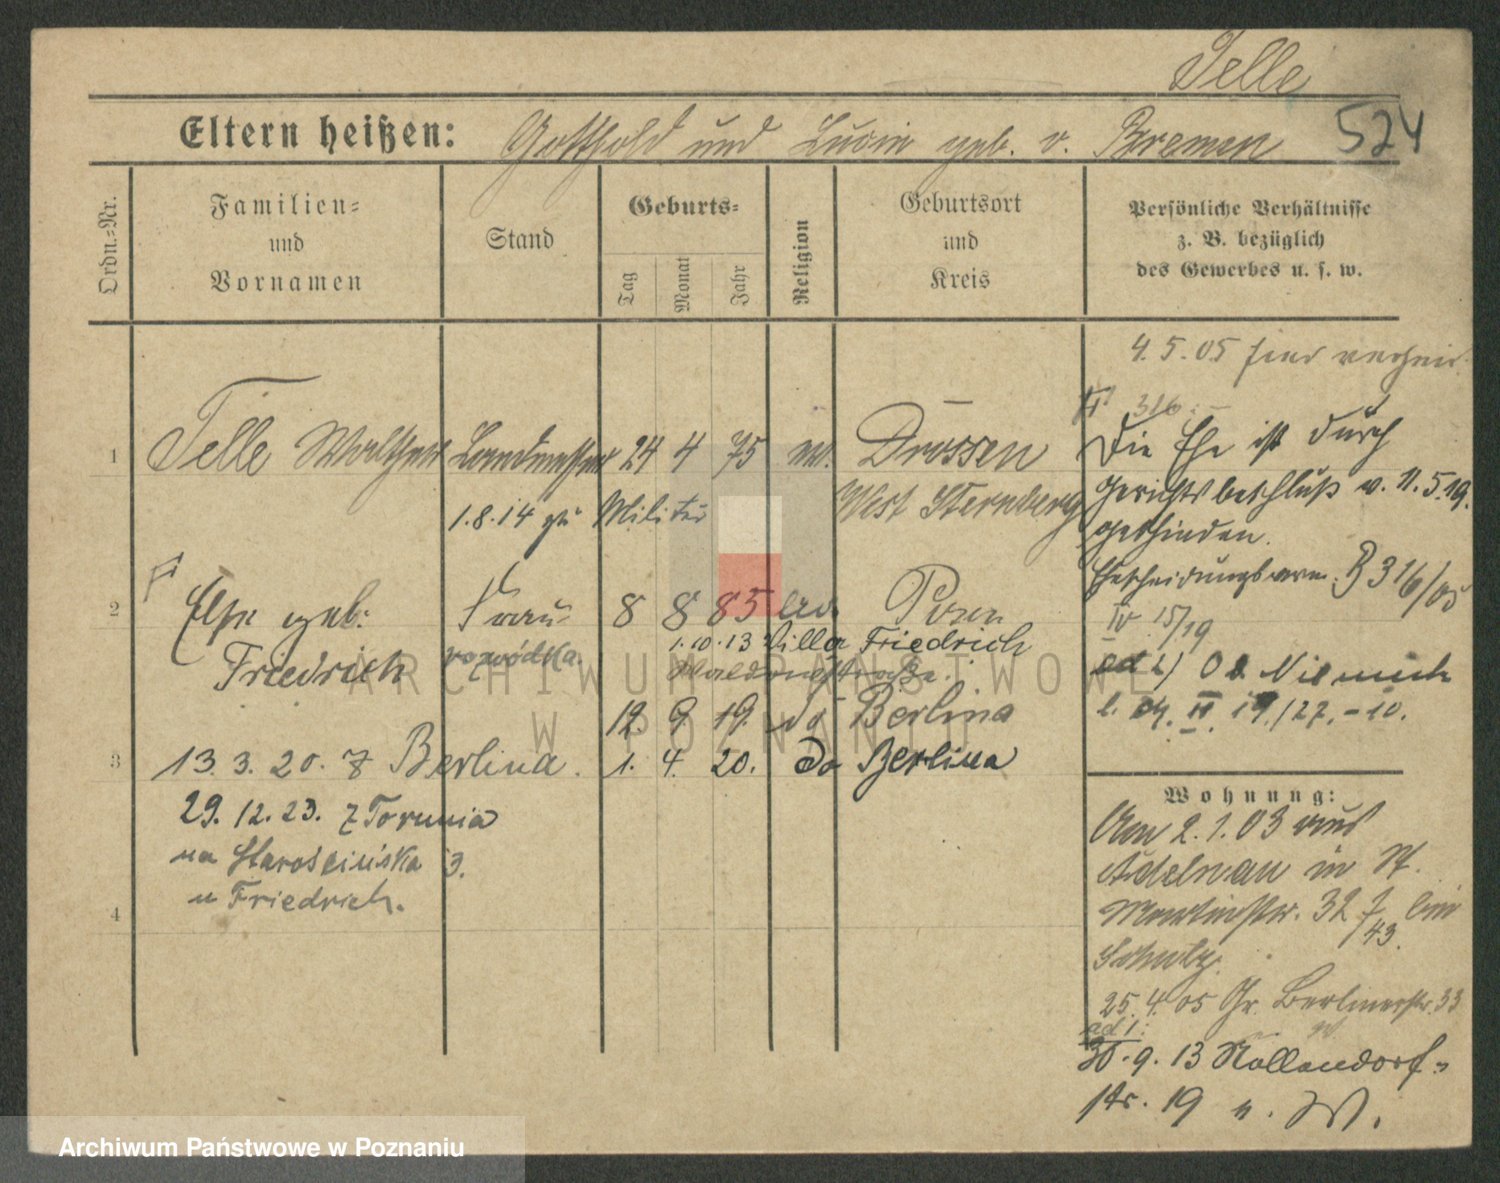 Telle
Eltern heißen: Gotthold und Lucie geb. v. Bremen 524
Ordn.=Nr.
Familien=
und
Vornamen
Stand
Geburts=
Tag
Monat
Jahr
Religion
Geburtsort
und
Kreis
Persönliche Verhältnisse
z. B. bezüglich
des Gewerbes u. s. w.
4. 5. 05 hier verheir.
1 Telle Walther Landmesser 24 4 75 ev. Drossen
West Sternberg
1.8.14 zu Militär
Die Ehe ist durch
Gerichtsbeschluß v. 11.5.19.
geschieden.
B 316/05
IV 15/19
2 Else geb. Frau 8 8 85 ev. Posen
Friedrich rozwódka. 1.10.13 Villa Friedrich
Waldowstraße.
12. 9. 19. do Berlina
3 13. 3. 20. z Berlina. 1. 4. 20. do Berlina
29. 12. 23. z Torunia
na Starościńska 3.
u Friedrich.
4
Wohnung:
Am 2.1.03 aus
Adelnau in St.
Martinstr. 32 bei
Schulz.
25. 4. 05 Gr. Berlinerstr. 33
ad 1.
30. 9. 13 Nollendorf=
str. 19 n. W.
ARCHIWUM PAŃSTWOWE
W POZNANIU
Archiwum Państwowe w Poznaniu